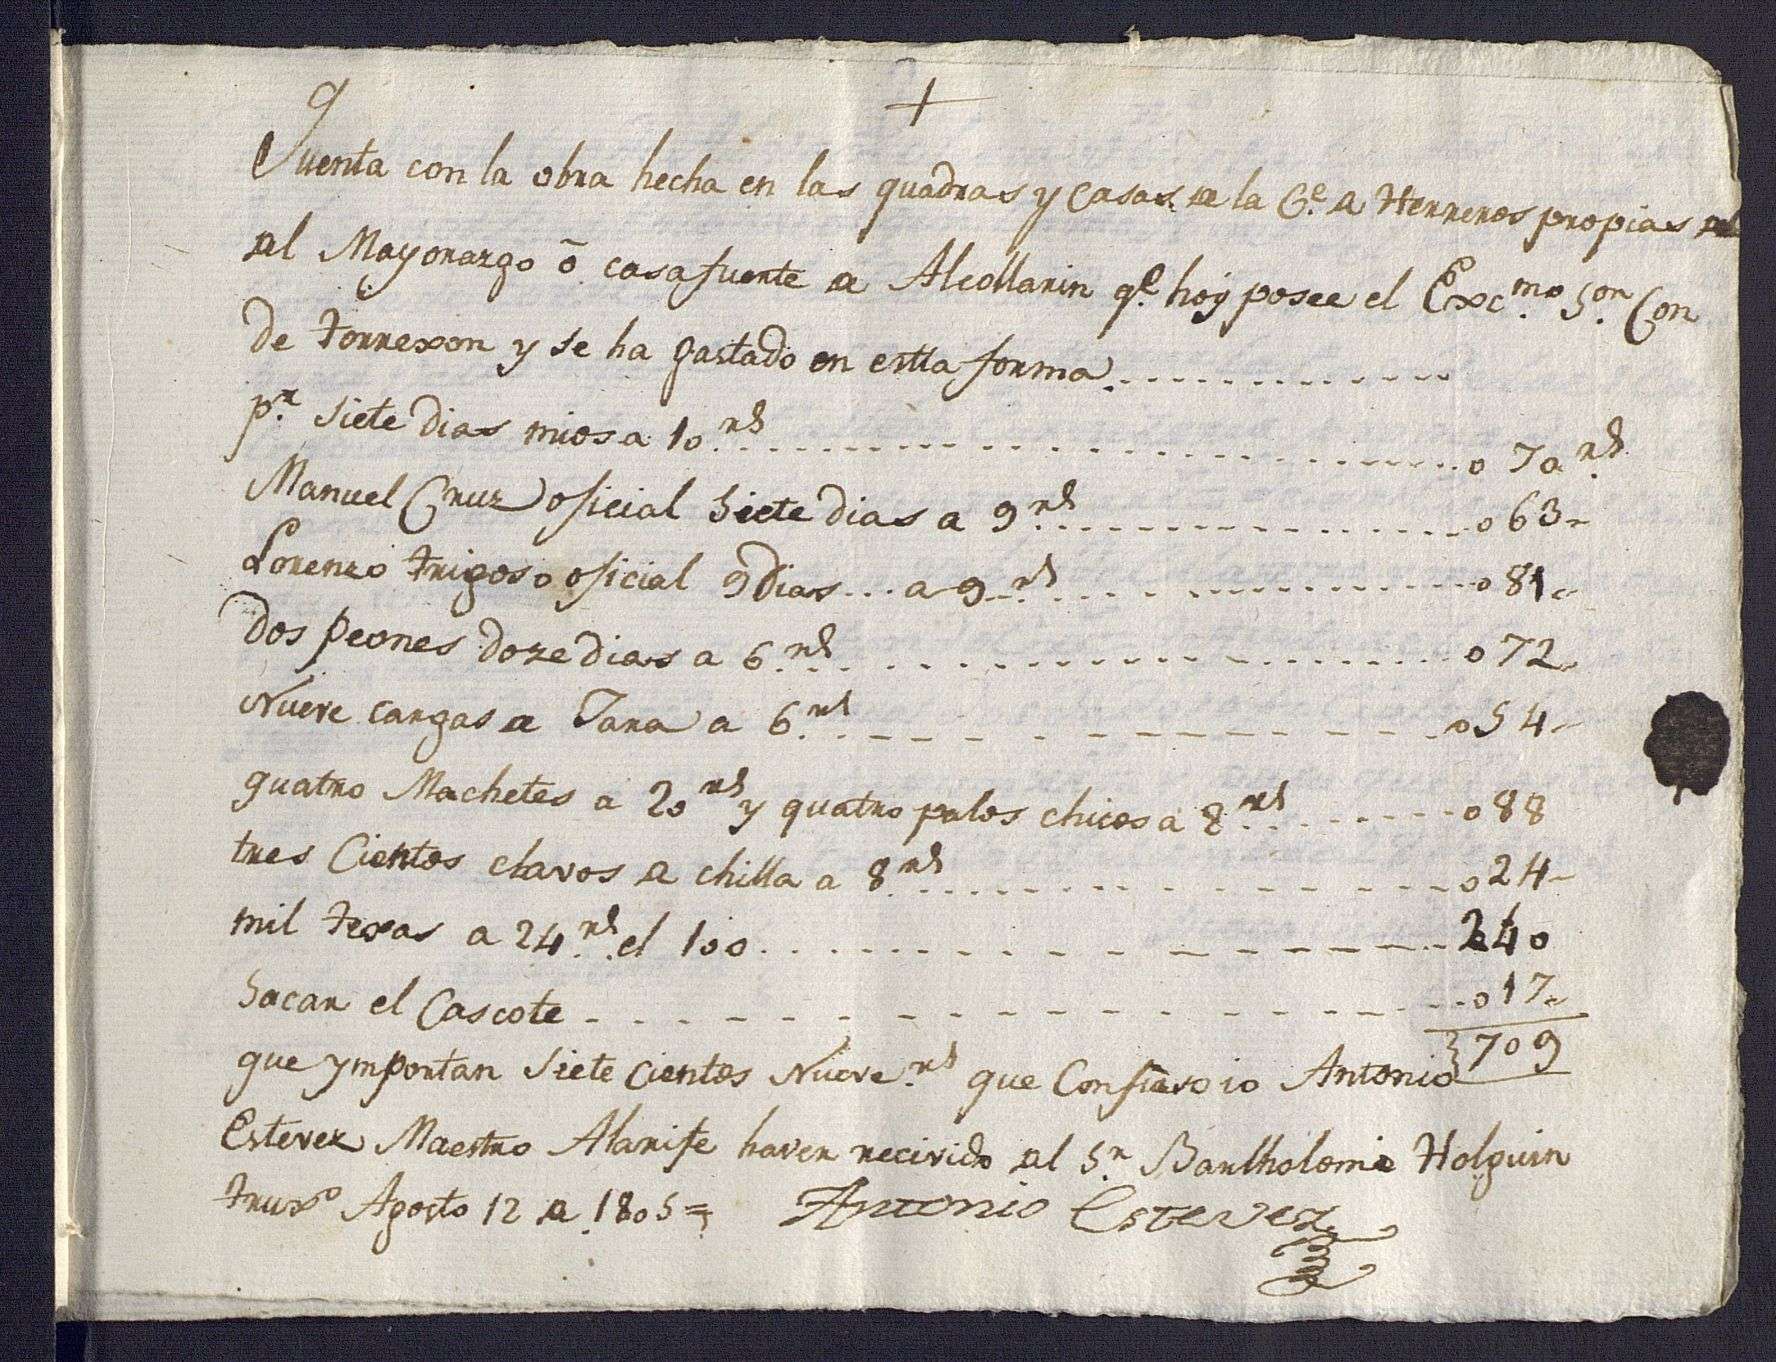 +
Quenta con la obra hecha en las quadras y casas de la Ce. de Herreros propias del
del Mayorazgo ō casa fuerte de Alcollarin qe. hoy posee el Excmo. Sor. Con
de torrexon y se ha gastado en estta forma..............
pr. Siete dias mios a 10 rs. .............. 070 rs.
Manuel Cruz oficial Siete dias a 9 rs. .............. 063-
Lorenzo trigoso oficial 9 dias... a 9 rs. .............. 081-
dos peones doze dias a 6 rs. .............. 072-
Nueve cargas de Tara a 6 rs. .............. 054-
quatro Machetes a 20 rs. y quatro palos chicos a 8 rs. ........ 088
tres Cientos clavos de chilla a 8 rs. .............. 024-
mil texas a 24 rs. el 100 .............. 240
Sacar el Cascote .............. 017-
que ymportan Siete cientos Nueve rs. que Confieso io Antonio } 709
Estevez Maestro Alarife haver recivido del Sr. Bartholome Holguin
truxo. Agosto 12 de 1805 = Antonio Estevez